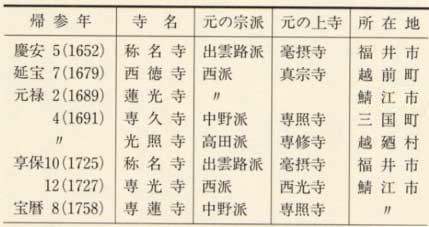 帰参年 寺名 元の宗派 元の上寺 所在地
慶安 5(1652) 称名寺 出雲路派 毫摂寺 福井市
延宝 7(1679) 西徳寺 西派 真宗寺 越前町
元禄 2(1689) 蓮光寺 〃 鯖江市
4(1691) 専久寺 中野派 専照寺 三国町
〃 光照寺 高田派 専修寺 越廼村
享保10(1725) 称名寺 出雲路派 毫摂寺 福井市
12(1727) 専光寺 西派 西光寺 鯖江市
宝暦 8(1758) 専蓮寺 中野派 専照寺 〃